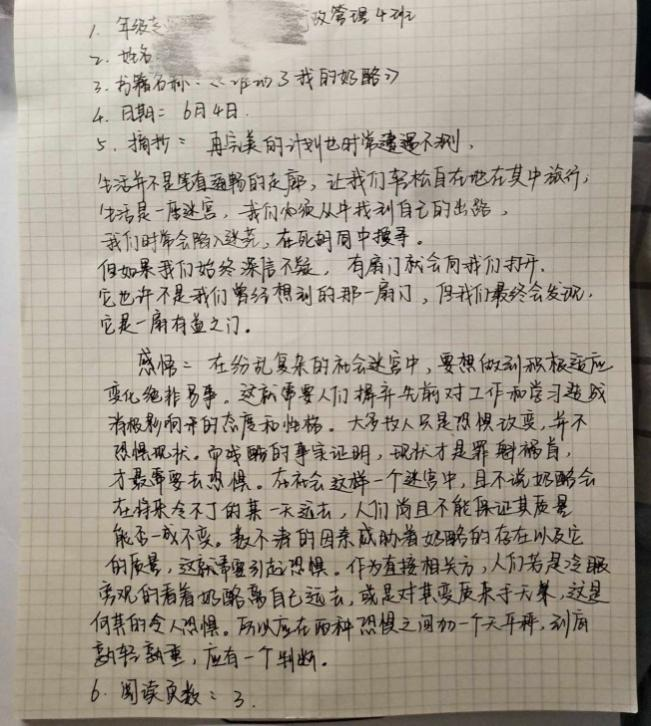 1. 年级
政管理4班
2. 姓名
3. 书籍名称:《谁动了我的奶酪》
4. 日期: 6月4日.
5. 摘抄: 再完美的计划也时常遭遇不测,
生活并不是笔直通畅的走廊,让我们轻松自在地在其中旅行;
生活是一座迷宫,我们必须从中找到自己的出路,
我们时常会陷入迷茫,在死胡同中搜寻。
但如果我们始终深信不疑,有扇门就会向我们打开,
它也许不是我们曾经想到的那一扇门,但我们最终会发现,
它是一扇有益之门。
感悟: 在纷乱复杂的社会迷宫中,要想做到积极适应
变化绝非易事。这就需要人们摒弃先前对工作和学习造成
消极影响开的态度和性格。大多数人只是恐惧改变,并不
恐惧现状。而残酷的事实证明,现状才是罪魁祸首,
才最需要去恐惧。在社会这样一个迷宫中,且不说奶酪会
在将来冷不丁的某一天远去,人们尚且不能保证其质量
能否一成不变。数不清的因素威胁着奶酪的存在以及它
的质量,这就需要引起恐惧。作为直接相关方,人们若是冷眼
旁观的看着奶酪离自己远去,或是对其变质束手无策,这是
何其的令人恐惧。所以应在两种恐惧之间加一个天平秤,到底
孰轻孰重,应有一个判断。
6. 阅读页数: 3.